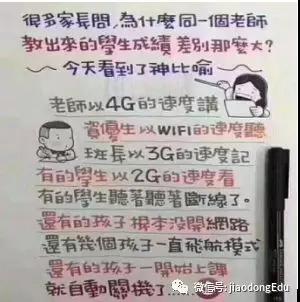 很多家長問,為什麼同一個老師
教出來的學生成績差別那麼大?
~今天看到了神比喻~
老師以4G的速度講
資優生以WIFI的速度聽
班長以3G的速度記
有的學生以2G的速度看
有的學生聽著聽著斷線了。
還有的孩子根本沒開網路
還有幾個孩子一直飛航模式
還有的孩子一開始上課
就自動關機了......
微信号: jiaodongEdu